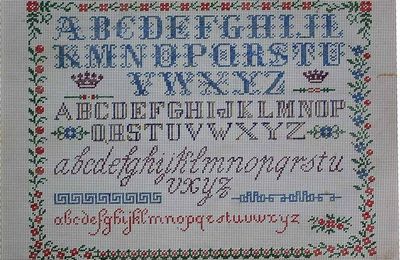 ABCDEFGHIJL
KMNOPQRSTU
VWXYZ
ABCDEFGHIJKLMNOP
QRSTUVWXYZ
abcdefghijklmnopqrstu
vxyz
abcdefghijklmnopqrstuvwxyz